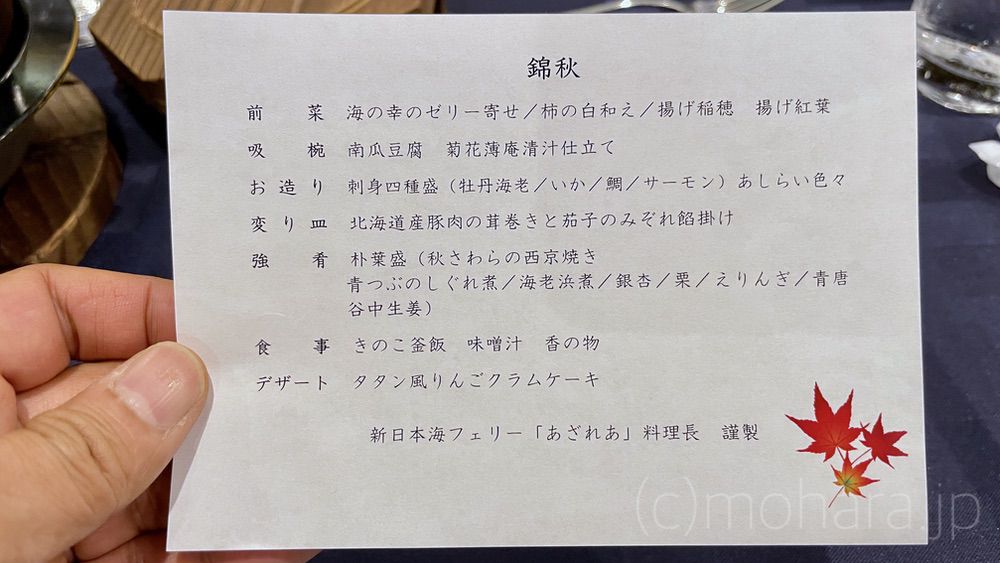 錦秋
前菜 海の幸のゼリー寄せ／柿の白和え／揚げ稲穂 揚げ紅葉
吸椀 南瓜豆腐 菊花薄庵清汁仕立て
お造り 刺身四種盛（牡丹海老／いか／鯛／サーモン）あしらい色々
変り皿 北海道産豚肉の茸巻きと茄子のみぞれ餡掛け
強肴 朴葉盛（秋さわらの西京焼き
青つぶのしぐれ煮／海老浜煮／銀杏／栗／えりんぎ／青唐
谷中生姜）
食事 きのこ釜飯 味噌汁 香の物
デザート タタン風りんごクラムケーキ
新日本海フェリー「あざれあ」料理長 謹製
(c)mohara.jp